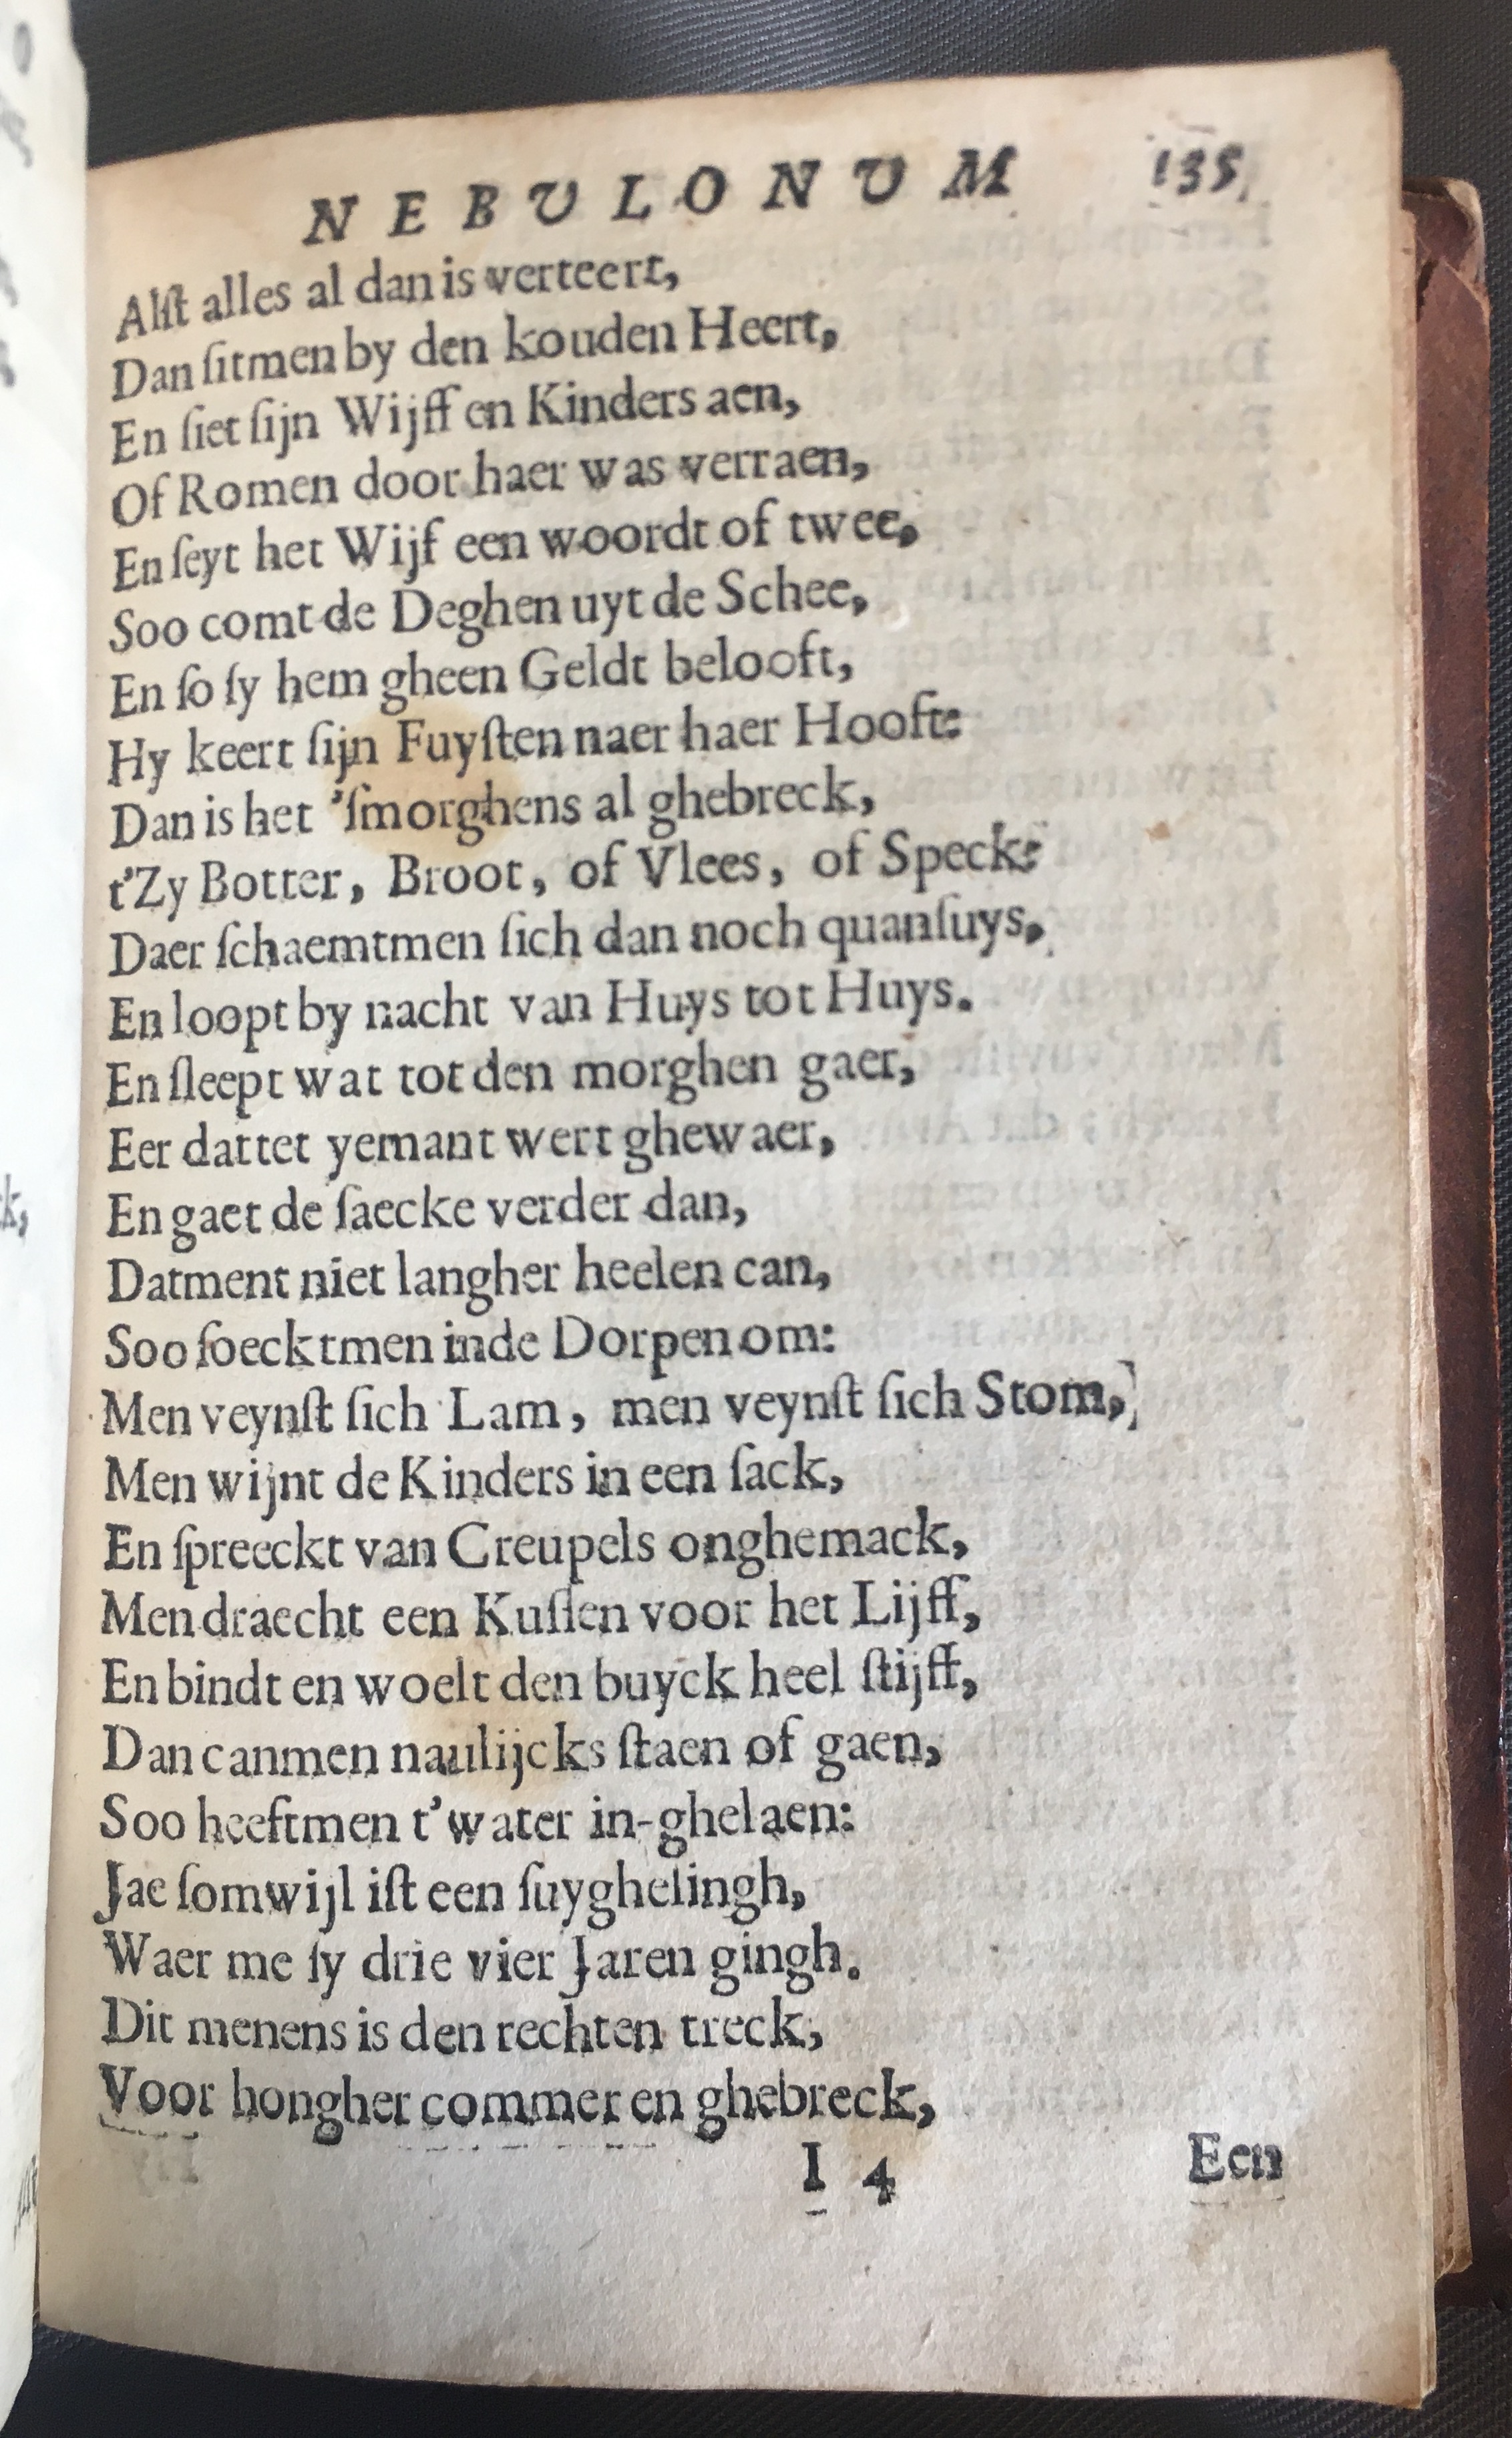 NEBULONUM 135
Alſt alles al dan is verteert,
Dan ſitmen by den kouden Heert,
En ſiet ſijn Wijff en Kinders aen,
Of Romen door haer was verraen,
En ſeyt het Wijf een woordt of twee,
Soo comt de Deghen uyt de Schee,
En ſo ſy hem gheen Geldt belooft,
Hy keert ſijn Fuyſten naer haer Hooft:
Dan is het 'ſmorghens al ghebreck,
t'Zy Botter, Broot, of Vlees, of Speck:
Daer ſchaemtmen ſich dan noch quanſuys,
En loopt by nacht van Huys tot Huys.
En ſleept wat tot den morghen gaer,
Eer dattet yemant wert ghewaer,
En gaet de ſaecke verder dan,
Datment niet langher heelen can,
Soo ſoecktmen inde Dorpen om:
Men veynſt ſich Lam, men veynſt ſich Stom,
Men wijnt de Kinders in een ſack,
En ſpreeckt van Creupels onghemack,
Men draecht een Kuſſen voor het Lijff,
En bindt en woelt den buyck heel ſtijff,
Dan canmen naulijcks ſtaen of gaen,
Soo heeftmen t'water in-ghelaen:
Jae ſomwijl iſt een ſuyghelingh,
Waer me ſy drie vier Jaren gingh.
Dit menens is den rechten treck,
Voor hongher commer en ghebreck,
I 4 Een